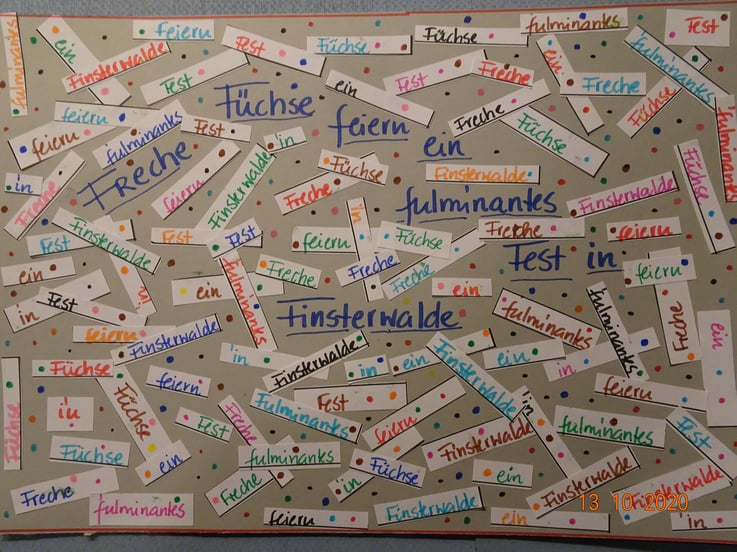 fulminantes
ein
feiern
Fest
Füchse
Füchse
fulminantes
Fest
Finsterwalde
Fest
ein
Fest
Freche
ein
Freche
fulminantes
Füchse
feiern
feiern
fulminantes
Fest
Füchse feiern ein
Freche
fulminantes
Fest in
Finsterwalde
in
Freche
Füchse
Füchse
fulminantes
in
Freche
feiern
Finsterwalde
Freche
Finsterwalde
Finsterwalde
Fest
Finsterwalde
Fest
Fest
feiern
in
Füchse
Freche
feiern
ein
in
Fest
in
ein
fulminantes
Freche
Freche
Freche
ein
feiern
feiern
Finsterwalde
fulminantes
fulminantes
Freche
ein
Füchse
Füchse
in
feiern
in
Finsterwalde
in
ein
Finsterwalde
ein
in
feiern
Füchse
Füchse
Fest
Freche
fulminantes
Fest
feiern
Finsterwalde
in
fulminantes
Fest
Freche
fulminantes
ein
Freche
fulminantes
in
Füchse
ein
Finsterwalde
Finsterwalde
feiern
Finsterwalde
ein
in
13 10 2020